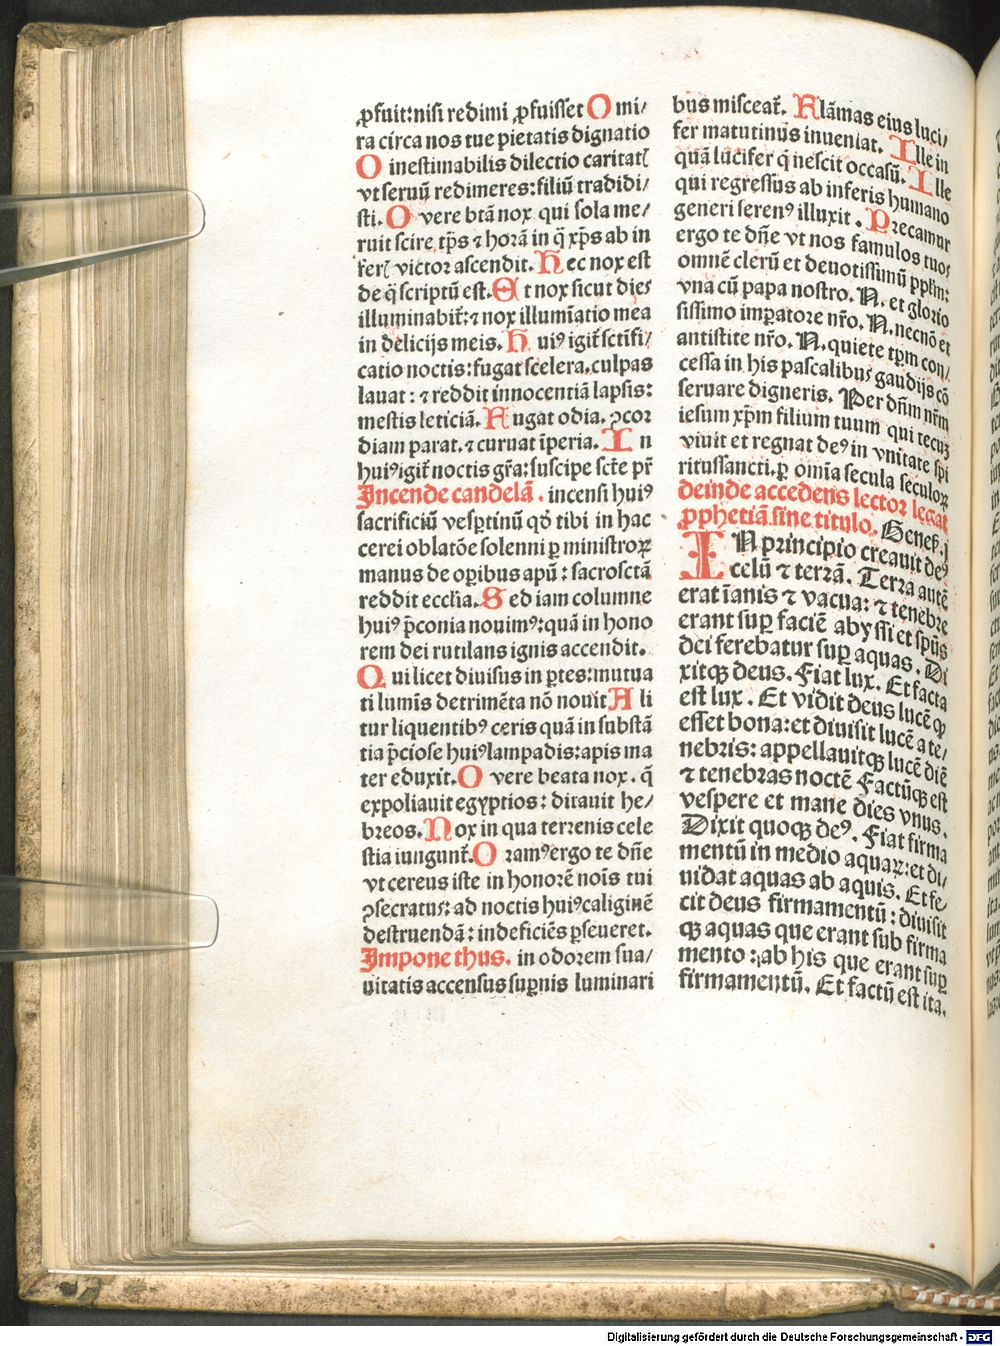 ꝓfuit: nisi redimi ꝓfuisset O mi/
ra circa nos tue pietatis dignatio
O inestimabilis dilectio caritatꝭ
vt seruū redimeres: filiū tradidi/
sti. O vere btā nox qui sola me/
ruit scire tp̄s ⁊ horā in q̄ xp̄s ab in
ferꝭ victor ascendit. H ec nox est
de q̄ scriptū est. E t nox sicut dies
illuminabit̄: ⁊ nox illumīatio mea
in delicijs meis. H uiꝰ igit̄ sctifi/
catio noctis: fugat scelera. culpas
lauat: ⁊ reddit innocentiā lapsis:
mestis leticiā. F ugat odia. ꝯcor
diam parat. ⁊ curuat īperia. I n
huiꝰ igit̄ noctis gr̄a: suscipe sct̄e pr̄
Incende candelā. incensi huiꝰ
sacrificiū vesꝑtinū qd̄ tibi in hac
cerei oblatōe solenni ꝑ ministroꝝ
manus de oꝑibus apū: sacrosctā
reddit ecclia. S ed iam columne
huiꝰ p̄conia nouimꝰ: quā in hono
rem dei rutilans ignis accendit.
Q ui licet diuisus in ꝑtes: mutua
ti lumīs detrimēta nō nouit A li
tur liquentibꝰ ceris quā in substā
tia p̄ciose huiꝰ lampadis: apis ma
ter eduxit. O vere beata nox. q̄
expoliauit egyptios: ditauit he/
breos. N ox in qua terrenis cele
stia iungunt̄. O ramꝰ ergo te dn̄e
vt cereus iste in honorē noīs tui
ꝯsecratus: ad noctis huiꝰ caliginē
destruendā: indeficiēs ꝑseueret.
Impone thus. in odorem sua/
uitatis accensus suꝑnis luminari
bus misceat̄. F lāmas eius luci/
fer matutinus inueniat. I lle in
quā lucifer q̄ nescit occasū. I lle
qui regressus ab inferis humano
generi serenꝰ illuxit. P recamur
ergo te dn̄e vt nos famulos tuos
omnē clerū et deuotissimū ppl̄m:
vna cū papa nostro. N. et glorio
sissimo imꝑatore nr̄o. N. necnō et
antistite nr̄o. N. quiete tꝑm con/
cessa in his pascalibus gaudijs cō
seruare digneris. Per dn̄m nr̄m
iesum xp̄m filium tuum qui tecuꝫ
viuit et regnat deꝰ in vnitate spi
ritussancti. ꝑ omīa secula seculoꝝ
deinde accedens lector legat
ꝓphetiā sine titulo. Genes̄. j
IN principio creauit deꝰ
celū ⁊ terrā. Terra autē
erat īanis ⁊ vacua: ⁊ tenebre
erant suꝑ faciē abyssi et spūs
dei ferebatur suꝑ aquas. Di
xitqꝫ deus. Fiat lux. Et facta
est lux. Et vidit deus lucē ꝙ
esset bona: et diuisit lucē a te/
nebris: appellauitqꝫ lucē diē
⁊ tenebras noctē Factūqꝫ est
vespere et mane dies vnus.
Dixit quoqꝫ deꝰ. Fiat firma
mentū in medio aquaꝝ: et di/
uidat aquas ab aquis. Et fe/
cit deus firmamentū: diuisit
qꝫ aquas que erant sub firma
mento: ab his que erant suꝑ
firmamentū. Et factū est ita.
Digitalisierung gefördert durch die Deutsche Forschungsgemeinschaft - DFG